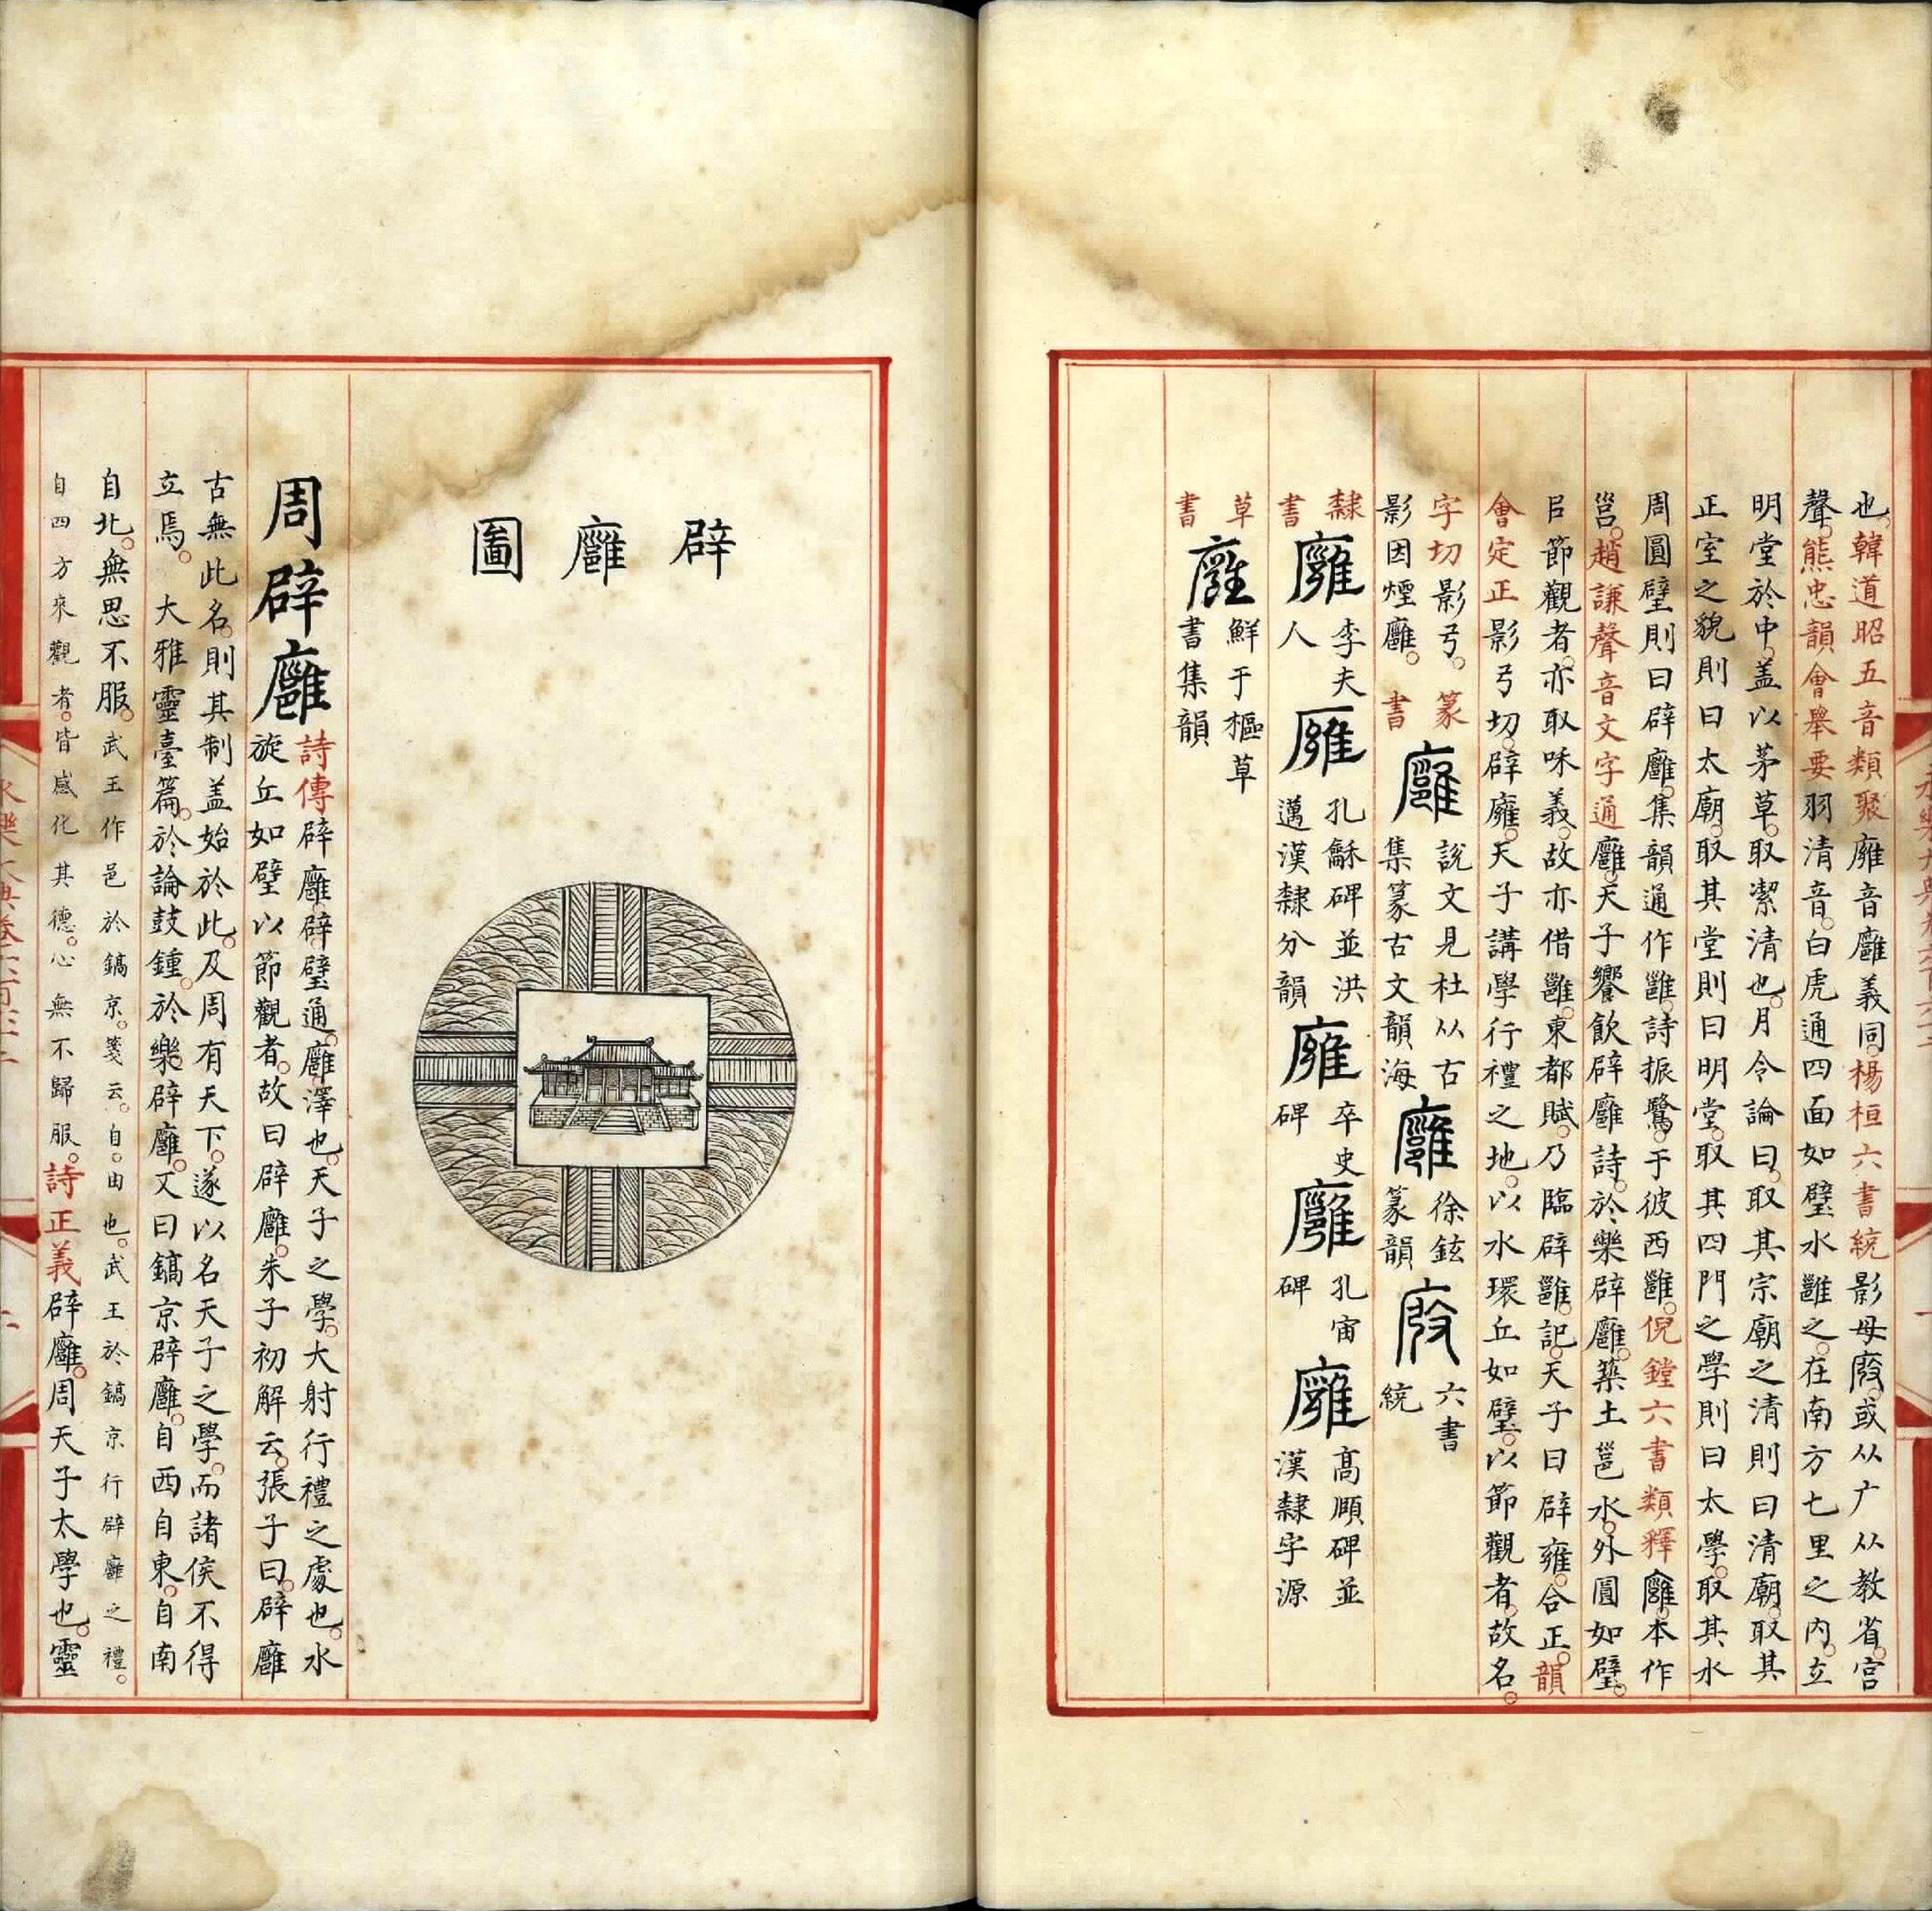 也。韓道昭五音類聚廱音廱義同。楊桓六書統影母廄。或从广从教省。宮
聲。熊忠韻會舉要羽清音。白虎通四面如璧水雝之。在南方七里之內。立
明堂於中。盖以茅草。取潔清也。月令論曰。取其宗廟之清則曰清廟。取其
正室之貌則曰太廟。取其堂則曰明堂。取其四門之學則曰太學。取其水
周圓璧則曰辟廱。集韻通作雝。詩振鷺。于彼西雝。倪鏜六書類釋廱。本作
邕。趙謙聲音文字通廱。天子饗飲辟廱詩。於樂辟廱。築土邕水。外圓如璧。
㠯節觀者。亦取咊義。故亦借雝。東都賦。乃臨辟雝。記。天子曰辟雍。合正。韻
會定正影弓切。辟廱。天子講學行禮之地。以水環丘如璧。以節觀者。故名。
字切影弓。
影因煙廱。
篆書 廱 說文見杜从古集篆古文韻海 廱 徐鉉篆韻 六書統
隸書 廱 李夫人 廱 孔龢碑並洪邁漢隸分韻 廱 卒史碑 廱 孔宙碑 廱 高頤碑並漢隸字源
草書 廱 鮮于樞草書集韻
辟廱圖
周辟廱
詩傳辟廱。辟璧通。廱澤也。天子之學。大射行禮之處也。水
旋丘如璧以節觀者。故曰辟廱。朱子初解云。張子曰。辟廱
古無此名。則其制盖始於此。及周有天下。遂以名天子之學。而諸侯不得
立焉。大雅靈臺篇。於論鼓鍾。於樂辟廱。又曰鎬京辟廱。自西自東。自南
自北。無思不服。武王作邑於鎬京。箋云。自。由也。武王於鎬京行辟廱之禮。
自四方來觀者。皆感化其德。心無不歸服。詩正義辟廱。周天子太學也。靈